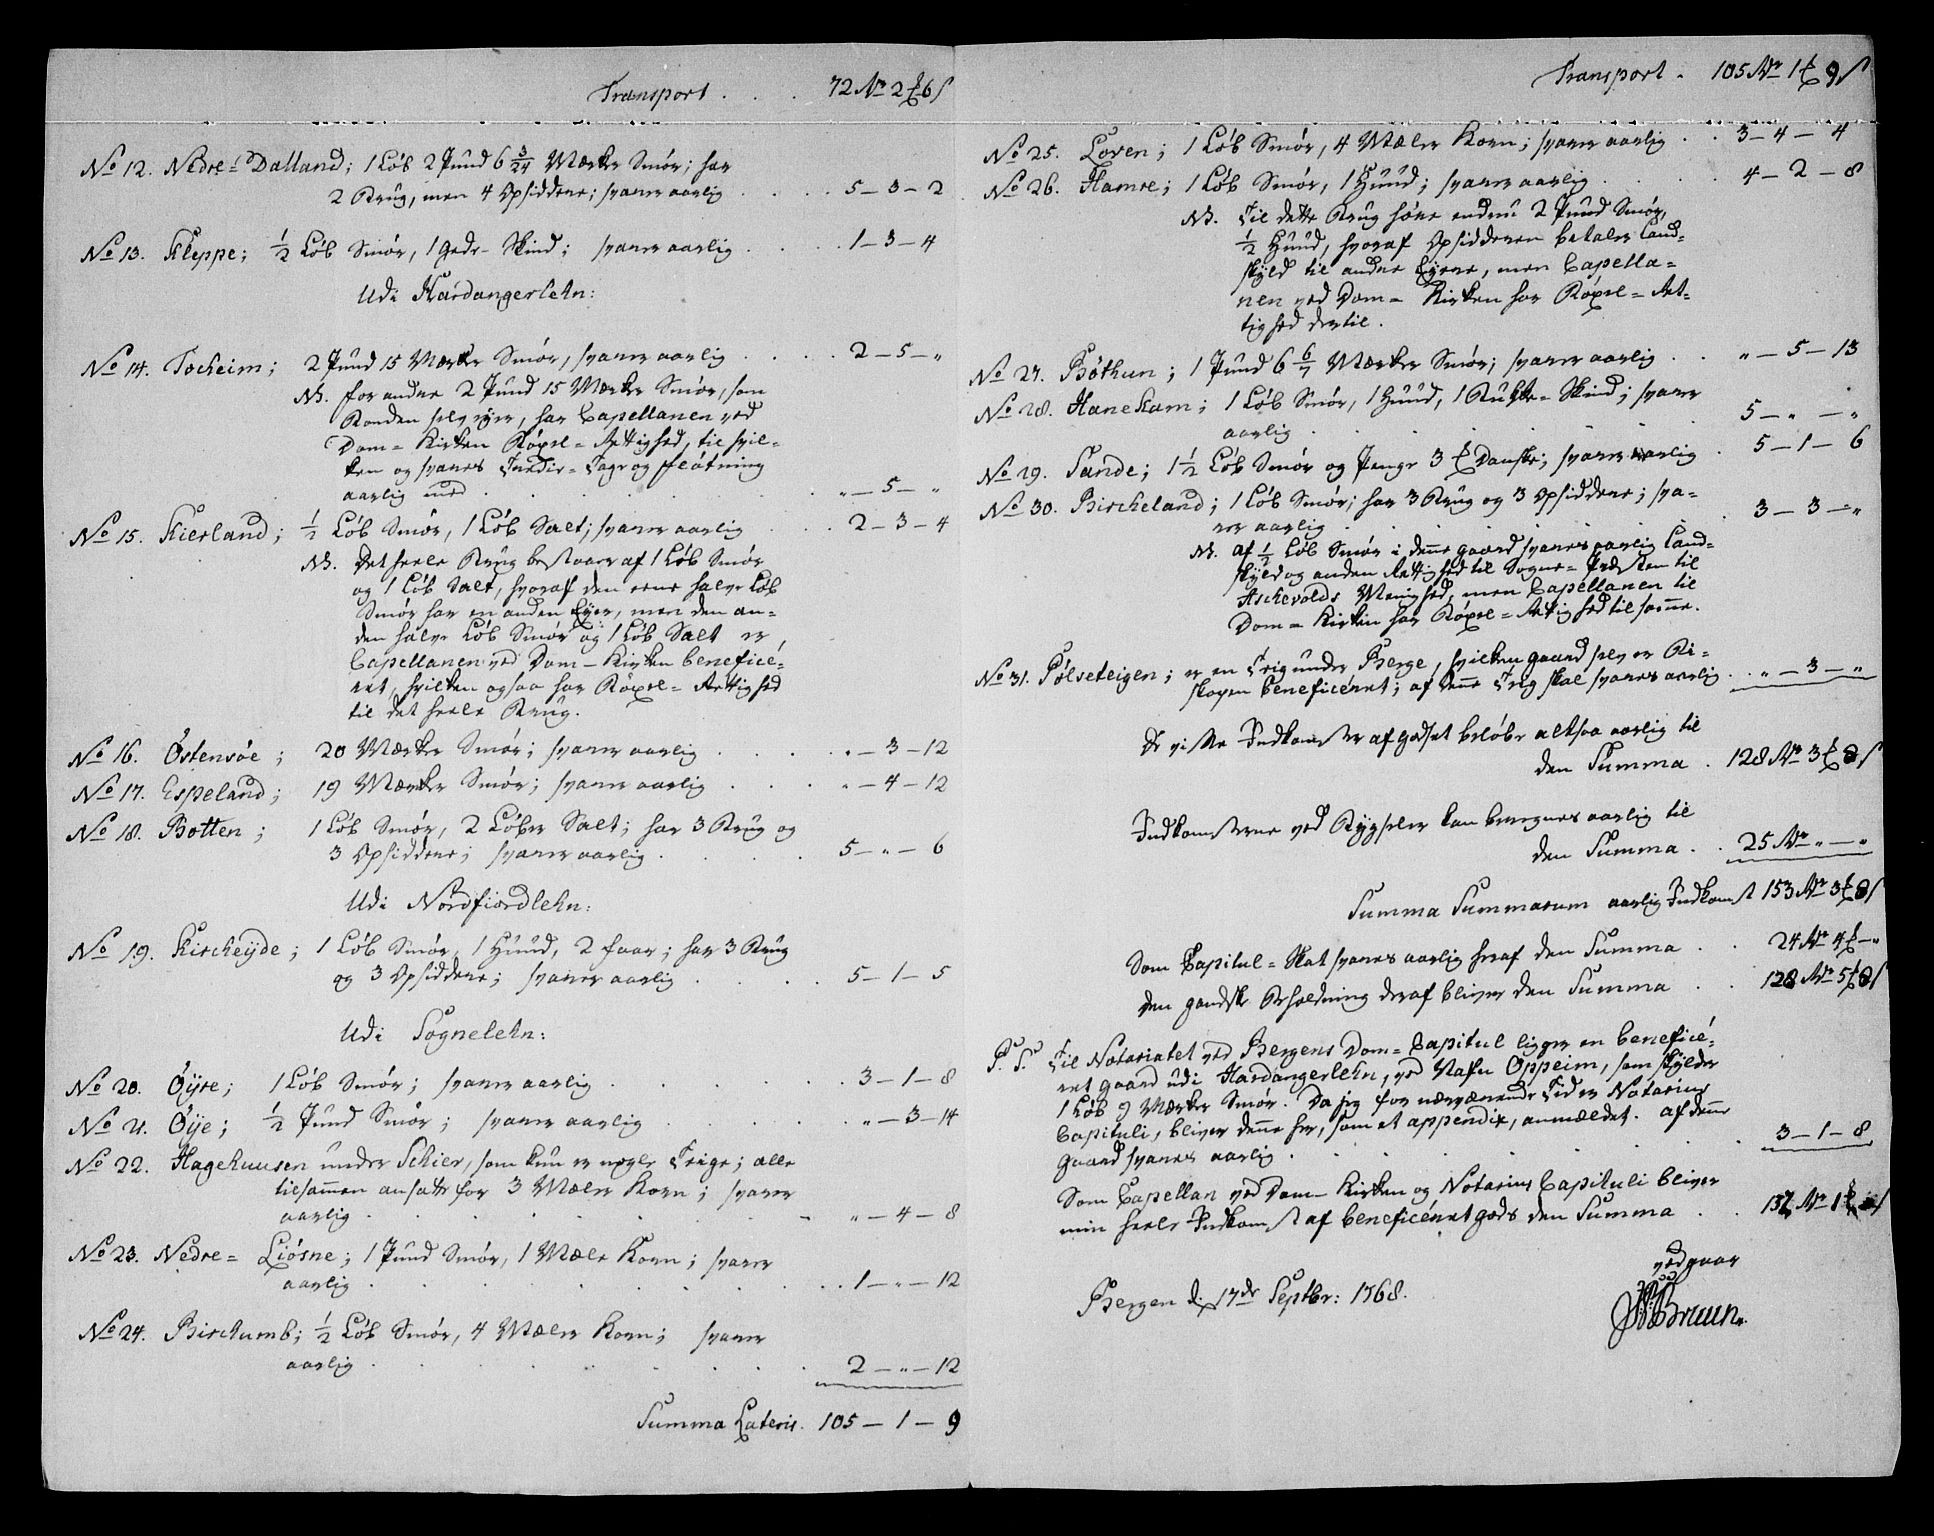 Transport . . . 72 Mr 2 ₰ 6 s
No 12. Nedre-Dalland; 1 Løb 2 Pund 6 3/24 Mærker Smør; har
2 Brug, men 4 Opsiddere; svarer aarlig . . . . 5 – 3 – 2
No 13. Kleppe; 1/2 Løb Smør, 1 Gede-Skind; svarer aarlig . . . . 1 – 3 – 4
Udi Hardangerlehn:
No 14. Tocheim; 2 Pund 15 Mærker Smør, svarer aarlig . . . . 2 – 5 – "
NB. for andre 2 Pund 15 Mærker Smør, som
Bonden selv eyer, har Capellanen ved
Dom-Kirken Böxel-Rettighed, til hvil-
ken og svares Tredie-Tage og Fløtning
aarlig med . . . . . . " – 5 – "
No 15. Kierland; 1/2 Løb Smør, 1 Løb Salt; svarer aarlig . . . 2 – 3 – 4
NB. Det heele Brug bestaaer af 1 Løb Smør
og 1 Løb Salt, hvoraf den eene halve Løb
Smør har en anden Eyer, men den an-
den halve Løb Smør og 1 Løb Salt er
Capellanen ved Dom-Kirken beneficé-
ret, hvilken ogsaa har Böxel-Rettighed
til det heele Brug.
No 16. Östensöe; 20 Mærker Smør; svarer aarlig . . . . " – 3 – 12
No 17. Espeland; 19 Mærker Smør; svarer aarlig . . . . " – 4 – 12
No 18. Botten; 1 Løb Smør, 2 Løber Salt; har 3 Brug og
3 Opsiddere; svarer aarlig . . . . 5 – " – 6
Udi Nordfiordlehn:
No 19. Kircheÿde; 1 Løb Smør, 1 Huud, 2 Faar; har 3 Brug
og 3 Opsiddere; svarer aarlig . . . . 5 – 1 – 5
Udi Sognelehn:
No 20. Öyre; 1 Løb Smør; svarer aarlig . . . . . 3 – 1 – 8
No 21. Öÿe; 1/2 Pund Smør; svarer aarlig . . . . . " – 3 – 14
No 22. Hagehuusen under Schier, som kun er nogle Teige; alle
tilsammen ansatte for 3 Mæler Korn; svarer
aarlig . . . . . . . " – 4 – 8
No 23. Nedre-Liösne; 1 Pund Smør, 1 Mæle Korn; svarer
aarlig . . . . . . . 1 – " – 12
No 24. Birchumb; 1/2 Løb Smør, 4 Mæler Korn; svarer
aarlig . . . . . . . 2 – " – 12
Summa Lateris. 105 – 1 – 9
Transport . 105 Mr 1 ₰ 9 s
No 25. Loven; 1 Løb Smør, 4 Mæler Korn; svarer aarlig . . 3 – 4 – 4
No 26. Hamre; 1 Løb Smør, 1 Huud; svarer aarlig . . . . 4 – 2 – 8
NB. Til dette Brug höre endnu 2 Pund Smør,
1/2 Huud, hvoraf Opsidderen betaler Land-
skyld til andre Eyere, men Capella-
nen ved Dom-Kirken har Böxel-Ret-
tighed dertil.
No 27. Böthun; 1 Pund 6 6/7 Mærker Smør; svarer aarlig . . " – 5 – 13
No 28. Hanekam; 1 Løb Smør, 1 Huud, 1 Bukke-Skind; svarer
aarlig . . . . . . 5 – " – "
No 29. Sande; 1 1/2 Løb Smør og Penge 3 ₰ Danske; svarer aarlig . 5 – 1 – 6
No 30. Bircheland; 1 Løb Smør; har 3 Brug og 3 Opsiddere; sva-
rer aarlig . . . . . . 3 – 3 – "
NB. af 1/2 Løb Smør i denne gaard svares aarlig Land-
skyld og anden Rettighed til Sogne-Præsten til
Aschevolds Menighed, men Capellanen til
Dom-Kirken har Böxel-Rettighed til samme.
No 31. Pölseteigen; er en Teig under Berge, hvilken gaard selv er Bi-
skopen beneficéret; af denne Teig skal svares aarlig . . " – 3 – "
De visse Indkomster af godset beløbe altsaa aarlig til
den Summa . 128 Mr 3 ₰ 8 s
Indkomsterne ved Bygseler kan beregnes aarlig til
den Summa . . 25 Mr " – "
Summa Summarum aarlig Indkomst 153 Mr 3 ₰ 8 s
Som Capitul-Skat svares aarlig heraf den Summa . . 24 Mr 4 ₰ – "
den gandske Beholdning deraf bliver den Summa . . 128 Mr 5 ₰ 8 s
P.S. Til Notariatet ved Bergens Dom-Capitul ligger en beneficé-
ret gaard udi Hardangerlehn, ved Nafn Oppeim, som skylder
1 Løb 9 Mærker Smør. Da jeg for nærværende Tid er Notarius
Capituli, bliver denne her, som et appendix, anmældet. af denne
gaard svares aarlig . . . . . . . 3 – 1 – 8
Som Capellan ved Dom-Kirken og Notarius Capituli bliver
min heele Indkomst af beneficéret gods den Summa . . 132 Mr 1 ₰
vedgaar
Bergen d. 17de Septbr: 1768.
Bruun.